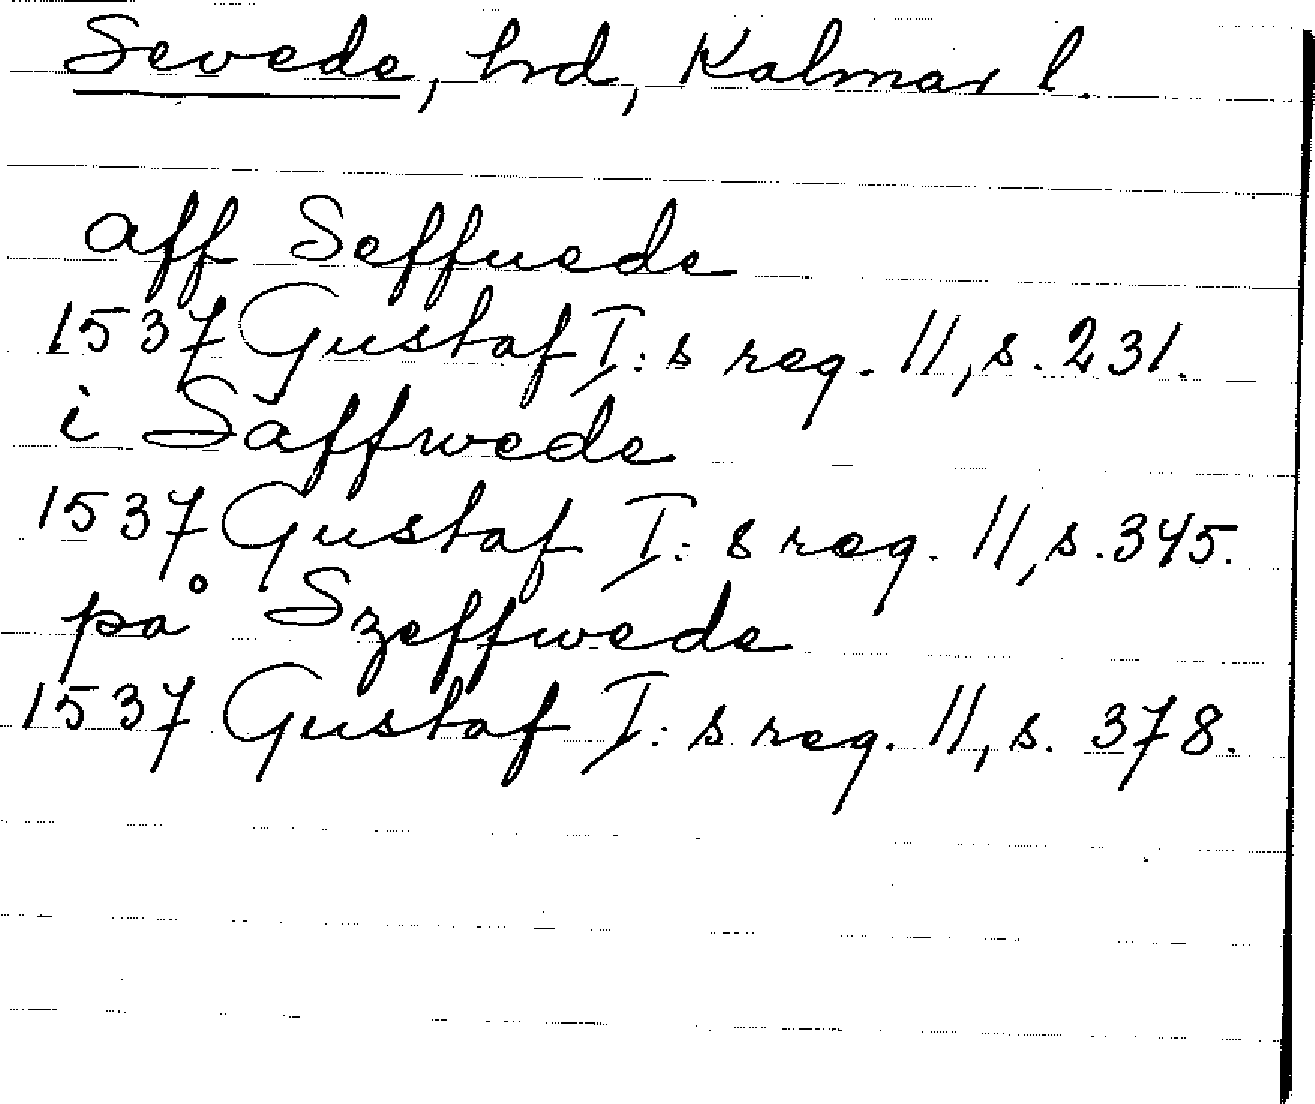 Sevede, hrd, Kalmar l.
aff Seffuede
1537 Gustaf I:s reg. 11, s. 231.
i Saffwede
1537 Gustaf I:s reg. 11, s. 345.
på Szeffwede
1537 Gustaf I:s reg. 11, s. 378.